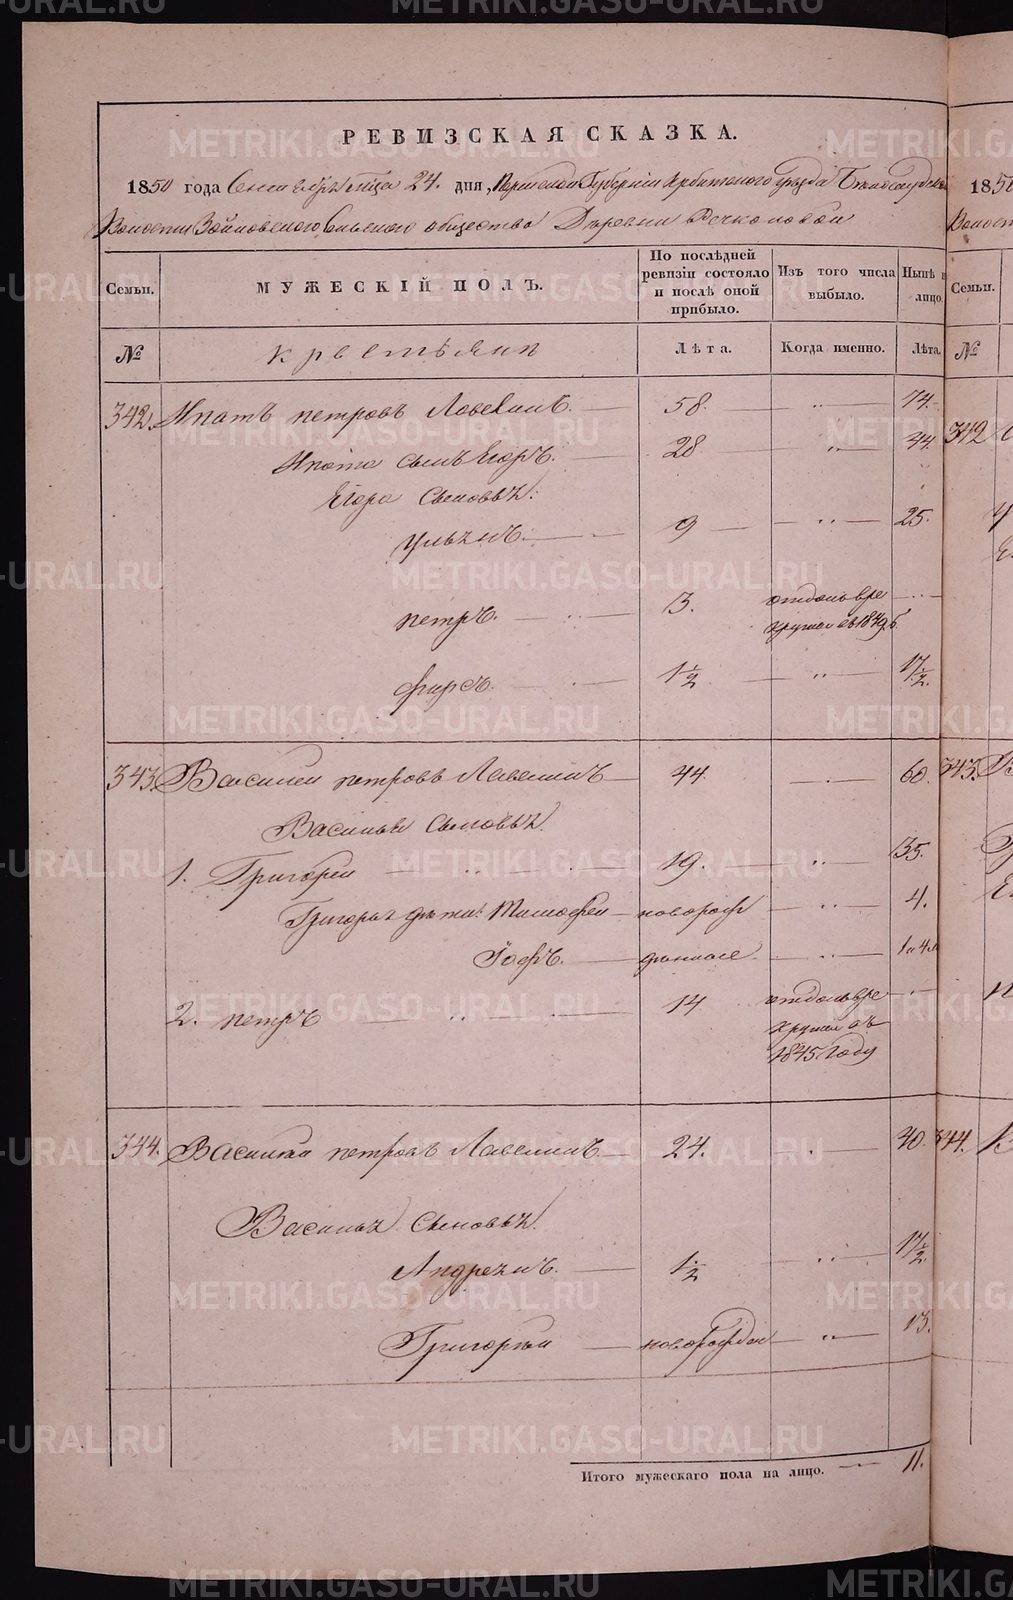 РЕВИЗСКАЯ СКАЗКА.
1850 года Сентября мѣсяца 24. дня, Пермской Губерніи Ирбитского Уѣзда Бѣлослудской
Волости Зайковского Сельского общества Деревни Речкаловой
Семьи.
МУЖЕСКІЙ ПОЛЪ.
По послѣдней ревизіи состояло и послѣ оной прибыло.
Изъ того числа выбыло.
Нынѣ на лицо.
Семьи.
№ крестьянъ Лѣта. Когда именно. Лѣта. №
342. Ипатъ петровъ Лавелинъ. 58. 74. 342
Ипата сынъ Егоръ. 28 44.
Егора Сыновья:
9 25.
петръ. 3. 
въ 1849 г.
фирсъ. 1 1/2 17 1/2.
343. Василей петровъ Лавелинъ 44. 60. 343.
Василья Сыновья.
1. Григореи 19. 35.
Григорья дѣти: Тимофеи новорож 4.
Іофъ. данные 1 и 4 м
2. петръ 14
въ
1845 году
344. Василеи петровъ Лавелинъ 24. 40 344.
Василья Сыновья.
Андреянъ. 1 1/2 17 1/2.
Григореи новорожден 13.
Итого мужескаго пола на лицо. 11.
METRIKI.GASO-URAL.RU